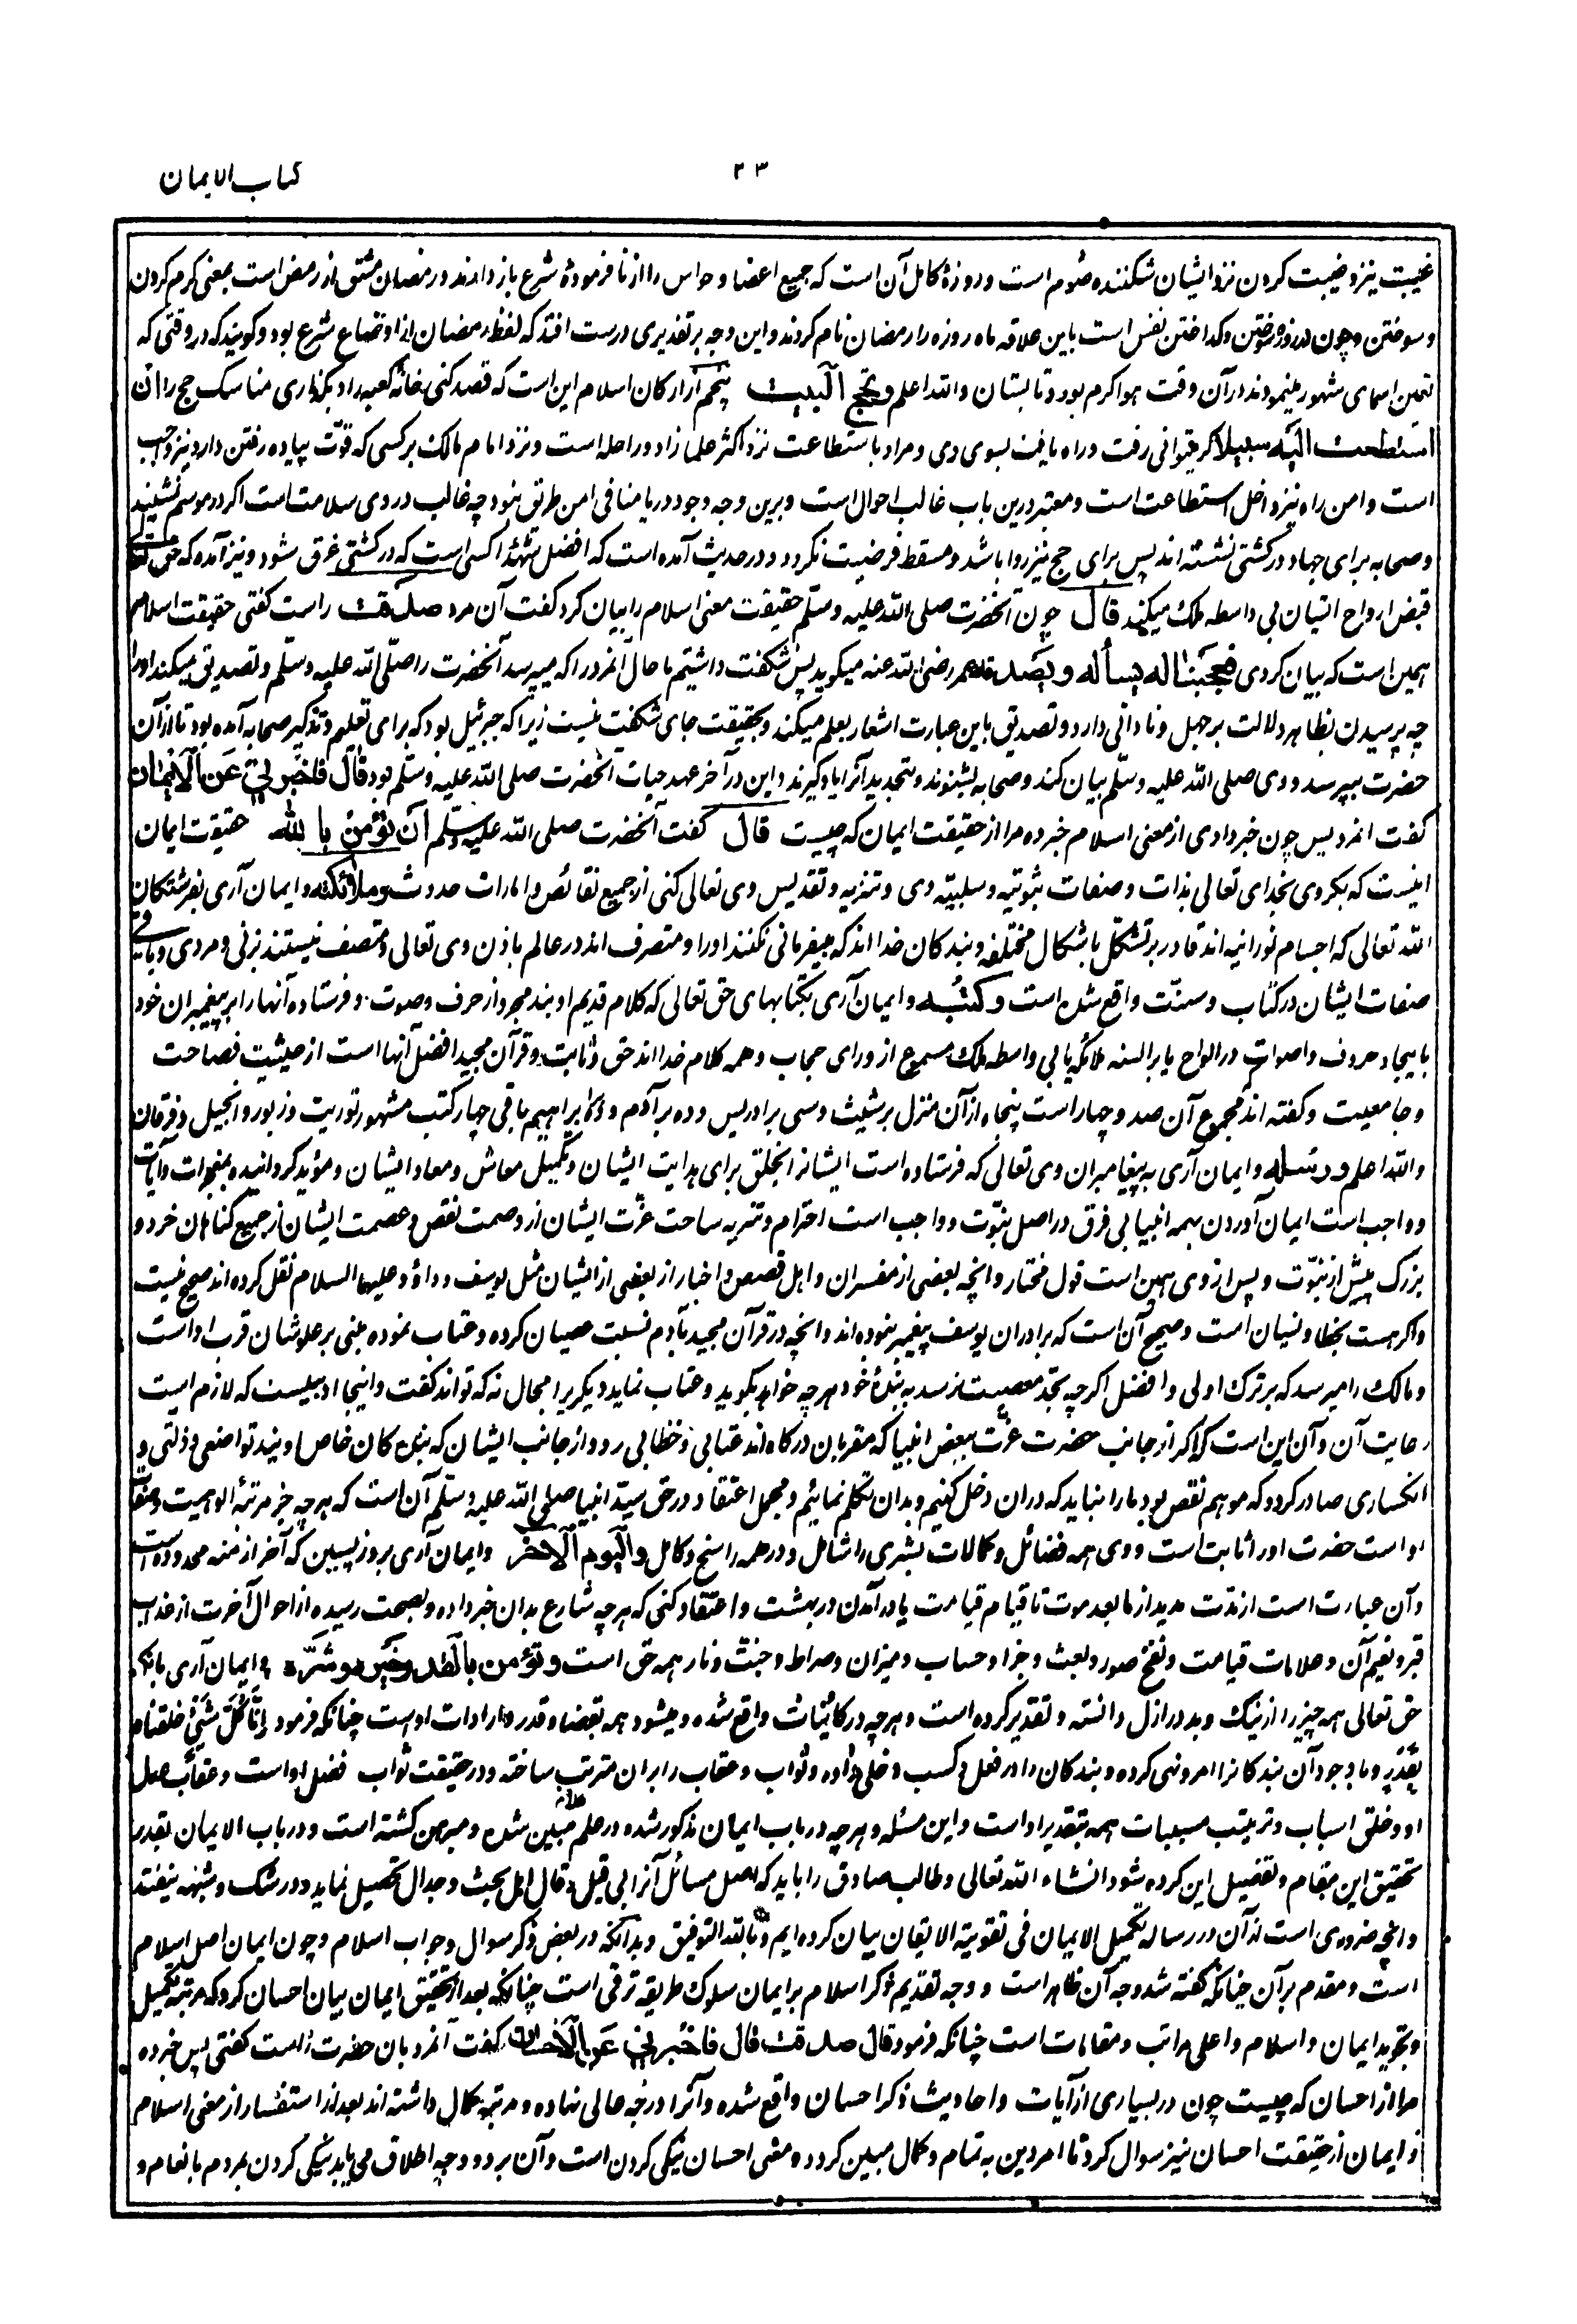 کتاب الایمان
۲۳
غیبت نیز و غیبت کردن نزد ایشان شکننده صوم است و روزهٔ کامل آن است که جمیع اعضا و حواس را از نافرمودهٔ شرع باز دارند و رمضان مشتق از رمض است بمعنی گرم کردن
و سوختن و چون در روزه سوختن و گداختن نفس است باین علاقه ماه روزه را رمضان نام کردند و این وجه بر تقدیری درست افتد که لفظ رمضان از اوضاع شرع بود و گویند که در وقتی که
تعین اسمای شهور مینمودند در آن وقت هوا گرم بود و تابستان والله اعلم و تحج البیت پنجم از ارکان اسلام این است که قصد کنی خانهٔ کعبه را و بگذاری مناسک حج را ان
استطعت الیه سبیلا اگر میتوانی رفت و راه یافت بسوی وی و مراد باستطاعت نزد اکثر علما زاد و راحله است و نزد امام مالک بر کسی که قوّت پیاده رفتن دارد نیز واجب
است و امن راه نیز داخل استطاعت است و معتبر درین باب غالب احوال است و برین وجه وجود دریا منافی امن طریق نبود چه غالب در وی سلامت است اگر در موسم نشینند
و صحابه برای جهاد در کشتی نشسته اند پس برای حج نیز روا باشد و مسقط فرضیت نگردد و در حدیث آمده است که افضل شهدا کسی است که در کشتی غرق شود و نیز آمده که حق تعالی
قبض ارواح ایشان بی واسطه ملک میکند قال چون آنحضرت صلی الله علیه و سلّم حقیقت معنی اسلام را بیان کرد گفت آن مرد صدقت راست گفتی حقیقت اسلام
همین است که بیان کردی فعجبنا له یسأله و یصدقه عمر رضی الله عنه میگوید پس شگفت داشتیم ما حال آنمرد را که میپرسد آنحضرت را صلّی الله علیه و سلّم و تصدیق میکند او را
چه پرسیدن بظاهر دلالت بر جهل و نادانی دارد و تصدیق باین عبارت اشعار بعلم میکند و بحقیقت جای شگفت نیست زیرا که جبرئیل بود که برای تعلیم و تذکیر صحابه آمده بود تا از آن
حضرت بپرسد و وی صلی الله علیه و سلّم بیان کند و صحابه بشنوند و بتجدید آنرا یاد گیرند و این در آخر عهد حیات آنحضرت صلی الله علیه و سلّم بود قال فاخبرنی عن الایمان
گفت آنمرد پس چون خبر دادی از معنی اسلام خبر ده مرا از حقیقت ایمان که چیست قال گفت آنحضرت صلی الله علیه و سلّم ان تؤمن بالله حقیقت ایمان
اینست که بگروی بخدای تعالی بذات و صفات ثبوتیه و سلبیّه وی و تنزیه و تقدیس وی تعالی کنی از جمیع نقائص و امارات حدوث وملائکته و ایمان آری بفرشتگان
الله تعالی که اجسام نورانیه اند قادر بر تشکّل باشکال مختلفه و بندگان خدا اند که بیفرمانی نکنند او را و متصرف اند در عالم باذن وی تعالی و متصف نیستند بزنی و مردی و باقی
صفات ایشان در کتاب و سنّت واقع شده است و کتبه و ایمان آری بکتابهای حق تعالی که کلام قدیم اویند مجرد از حرف و صوت و فرستاده آنها را بر پیغمبران خود
بایجاد حروف و اصوات در الواح یا بر السنه ملائکه یا بی واسطه ملک مسموع از ورای حجاب و همه کلام خدا اند حق و ثابت و قرآن مجید افضل آنها است از حیثیت فصاحت
و جامعیت و گفته اند مجموع آن صد و چهار است پنجاه از آن منزل بر شیث و سی بر ادریس و ده بر آدم و ده بر ابراهیم باقی چهار کتب مشهور توریت و زبور و انجیل و فرقان
والله اعلم و رسله و ایمان آری به پیغامبران وی تعالی که فرستاده است ایشانرا بخلق برای هدایت ایشان و تکمیل معاش و معاد ایشان و مؤید گردانیده بمعجزات و آیات
و واجب است ایمان آوردن بهمه انبیا بی فرق در اصل نبوّت و واجب است احترام و تنزیه ساحت عزّت ایشان از وصمت نقص و عصمت ایشان از جمیع گناهان خرد و
بزرگ پیش از نبوّت و پس از وی همین است قول مختار و آنچه بعضی از مفسران و اهل قصص و اخبار از بعضی از ایشان مثل یوسف و داؤد علیهما السلام نقل کرده اند صحیح نیست
و اگر هست بخطا و نسیان است و صحیح آن است که برادران یوسف پیغمبر نبوده اند و آنچه در قرآن مجید بآدم نسبت عصیان کرده و عتاب نموده مبنی بر علو شان قرب او است
و مالک را میرسد که بر ترک اولی و افضل اگرچه بحد معصیت نرسد به بندهٔ خود هر چه خواهد بگوید و عتاب نماید دیگری را مجال نه که تواند گفت و اینجا ادبیست که لازم است
رعایت آن و آن این است که اگر از جانب حضرت عزّت ببعض انبیا که مقربان درگاه اند عتابی و خطابی رود و از جانب ایشان که بندگان خاص اویند تواضعی و ذلتی و
انکساری صادر گردد که موهم نقص بود ما را نباید که در آن دخل کنیم و بدان تکلم نمائیم و مجمل اعتقاد در حق سیّد انبیا صلی الله علیه و سلّم آن است که هر چه جز مرتبهٔ الوهیت و صفات
او است حضرت او را ثابت است و وی همه فضائل و کمالات بشری را شامل و در همه راسخ و کامل والیوم الآخر و ایمان آری بروز پسین که آخر ازمنه محدوده است
و آن عبارت است از مدّت مدید از ما بعد موت تا قیام قیامت یا در آمدن در بهشت و اعتقاد کنی که هر چه شارع بدان خبر داده و بصحت رسیده از احوال آخرت از عذاب
قبر و نعیم آن و علامات قیامت و نفخ صور و بعث و جزا و حساب و میزان و صراط و جنت و نار همه حق است و تؤمن بالقدر خیره و شرّه و ایمان آری بآنکه
حق تعالی همه چیز را از نیک و بد در ازل دانسته و تقدیر کرده است و هر چه در کائنات واقع شده و میشود همه بقضا و قدر و ارادات او است چنانکه فرمود انّا کلّ شیئ خلقناه
بقدر و با وجود آن بندگانرا امر و نهی کرده و بندگان را در فعل و کسب دخلی داده و ثواب و عقاب را بر آن مترتب ساخته و در حقیقت ثواب فضل او است و عقاب عدل
او و خلق اسباب و ترتیب مسببات همه بتقدیر او است و این مسئله و هر چه در باب ایمان مذکور شده در علم کلام مبین شده و مبرهن گشته است و در باب الایمان بقدر
تحقیق این مقام و تفصیل این کرده شود انشاء الله تعالی و طالب صادق را باید که اصل مسائل آنرا بی قیل و قال اهل بحث و جدال تحصیل نماید و در شک و شبهه نیفتد
و آنچه ضروری است از آن در رساله تکمیل الایمان فی تقویة الایقان بیان کرده ایم و بالله التوفیق و بدانکه در بعض ذکر سوال و جواب اسلام و چون ایمان اصل اسلام
است و مقدم بر آن چنانکه گفته شد وجه آن ظاهر است و وجه تقدیم ذکر اسلام بر ایمان سلوک طریقه ترقی است چنانکه بعد از تحقیق ایمان بیان احسان کرد که مرتبه تکمیل
و تجوید ایمان و اسلام و اعلی مراتب و مقامات است چنانکه فرمود قال صدقت قال فاخبرنی عن الاحسان گفت آنمرد بآن حضرت راست گفتی پس خبر ده
مرا از احسان که چیست چون در بسیاری از آیات و احادیث ذکر احسان واقع شده و آنرا درجه عالی نهاده و مرتبه کمال داشته اند بعد از استفسار از معنی اسلام
و ایمان از حقیقت احسان نیز سوال کرد تا امر دین به تمام و کمال مبین گردد و معنی احسان نیکی کردن است و آن بر دو وجه اطلاق می یابد نیکی کردن بمردم بانعام و